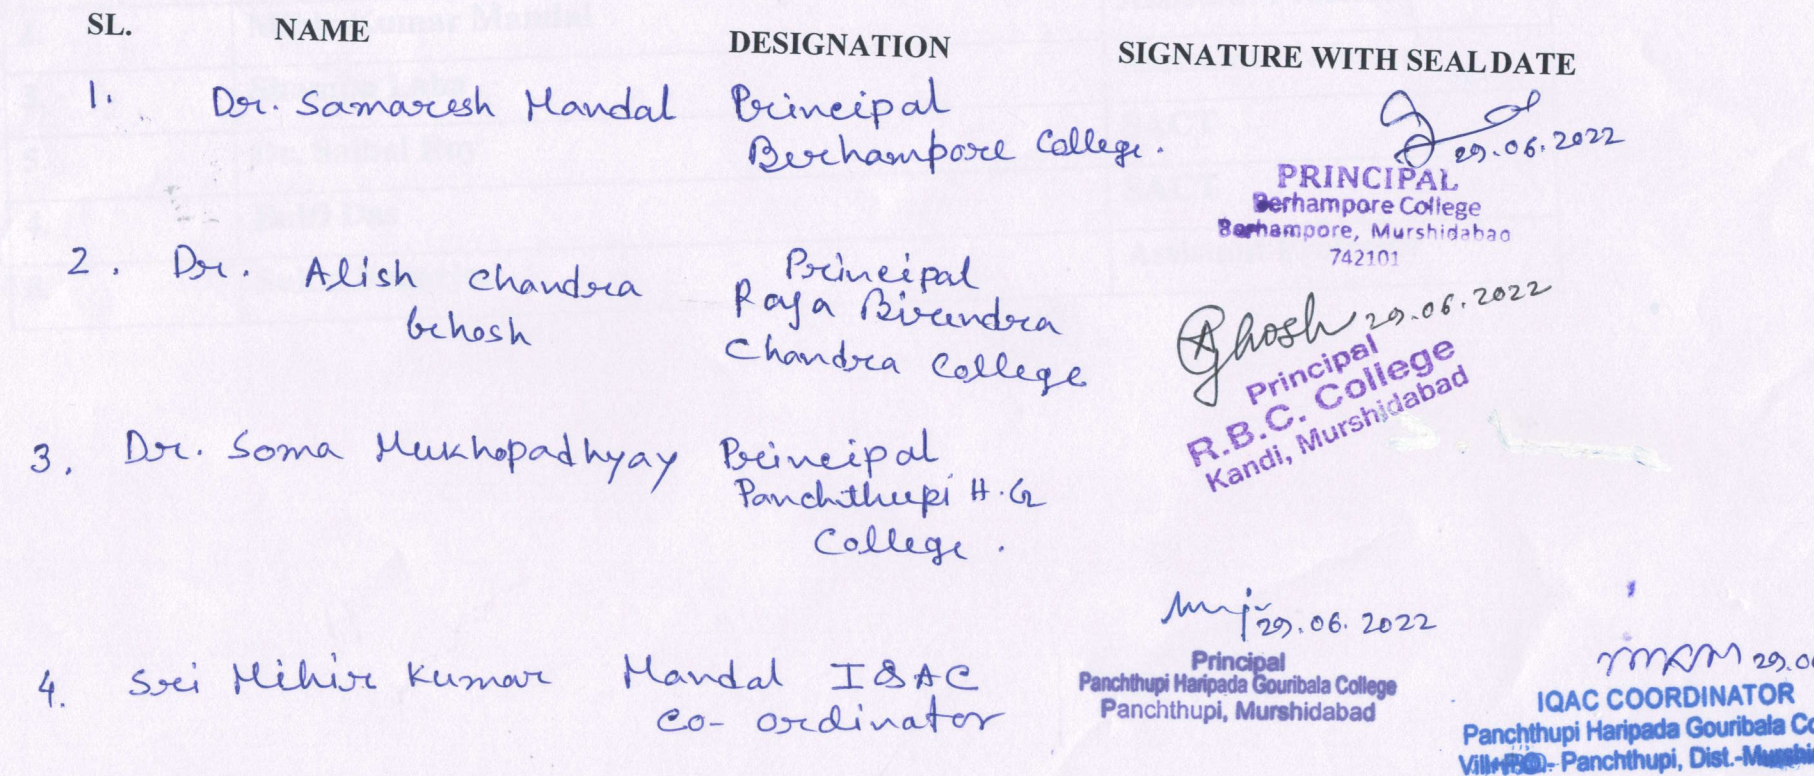 SL. NAME DESIGNATION SIGNATURE WITH SEAL DATE
1. Dr. Samaresh Mandal Principal
Berhampore College.
29.06.2022
PRINCIPAL
Berhampore College
Berhampore, Murshidabad
742101
2. Dr. Alish Chandra
Ghosh
Principal
Raja Birendra
Chandra College
Ghosh 29.06.2022
Principal
R.B.C. College
Kandi, Murshidabad
3. Dr. Soma Mukhopadhyay Principal
Panchthupi H.G
College.
29.06.2022
Principal
Panchthupi Haripada Gouribala College
Panchthupi, Murshidabad
4. Sri Mihir Kumar Mandal IQAC
Co-ordinator
29.0
IQAC COORDINATOR
Panchthupi Haripada Gouribala Co
Panchthupi, Dist.-Murshid